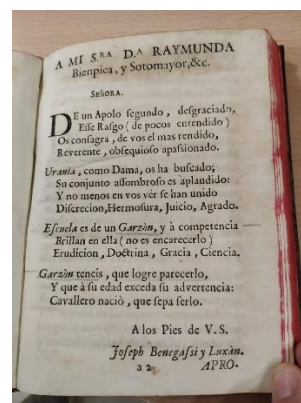 A MI S.RA D.A RAYMUNDA
Bienpica, y Sotomayor, &c.
SEñORA.
DE un Apolo segundo, desgraciado,
Esse Rasgo (de pocos entendido)
Os consagra, de vos el mas rendido,
Reverente, obsequioso apasionado.
Urania, como Dama, os ha buscado;
Su conjunto assombroso es aplaudido:
Y no menos en vos vèr se han unido
Discrecion, Hermosura, Juicio, Agrado.
Escuela es de un Garzòn, y à competencia
Brillan en ella (no es encarecerlo)
Erudicion, Doctrina, Gracia, Ciencia.
Garzòn teneis, que logre parecerlo,
Y que à su edad exceda su advertencia:
Cavallero naciò, que sepa serlo.
A los Pies de V.S.
Joseph Benegassi y Luxàn.
32 APRO-